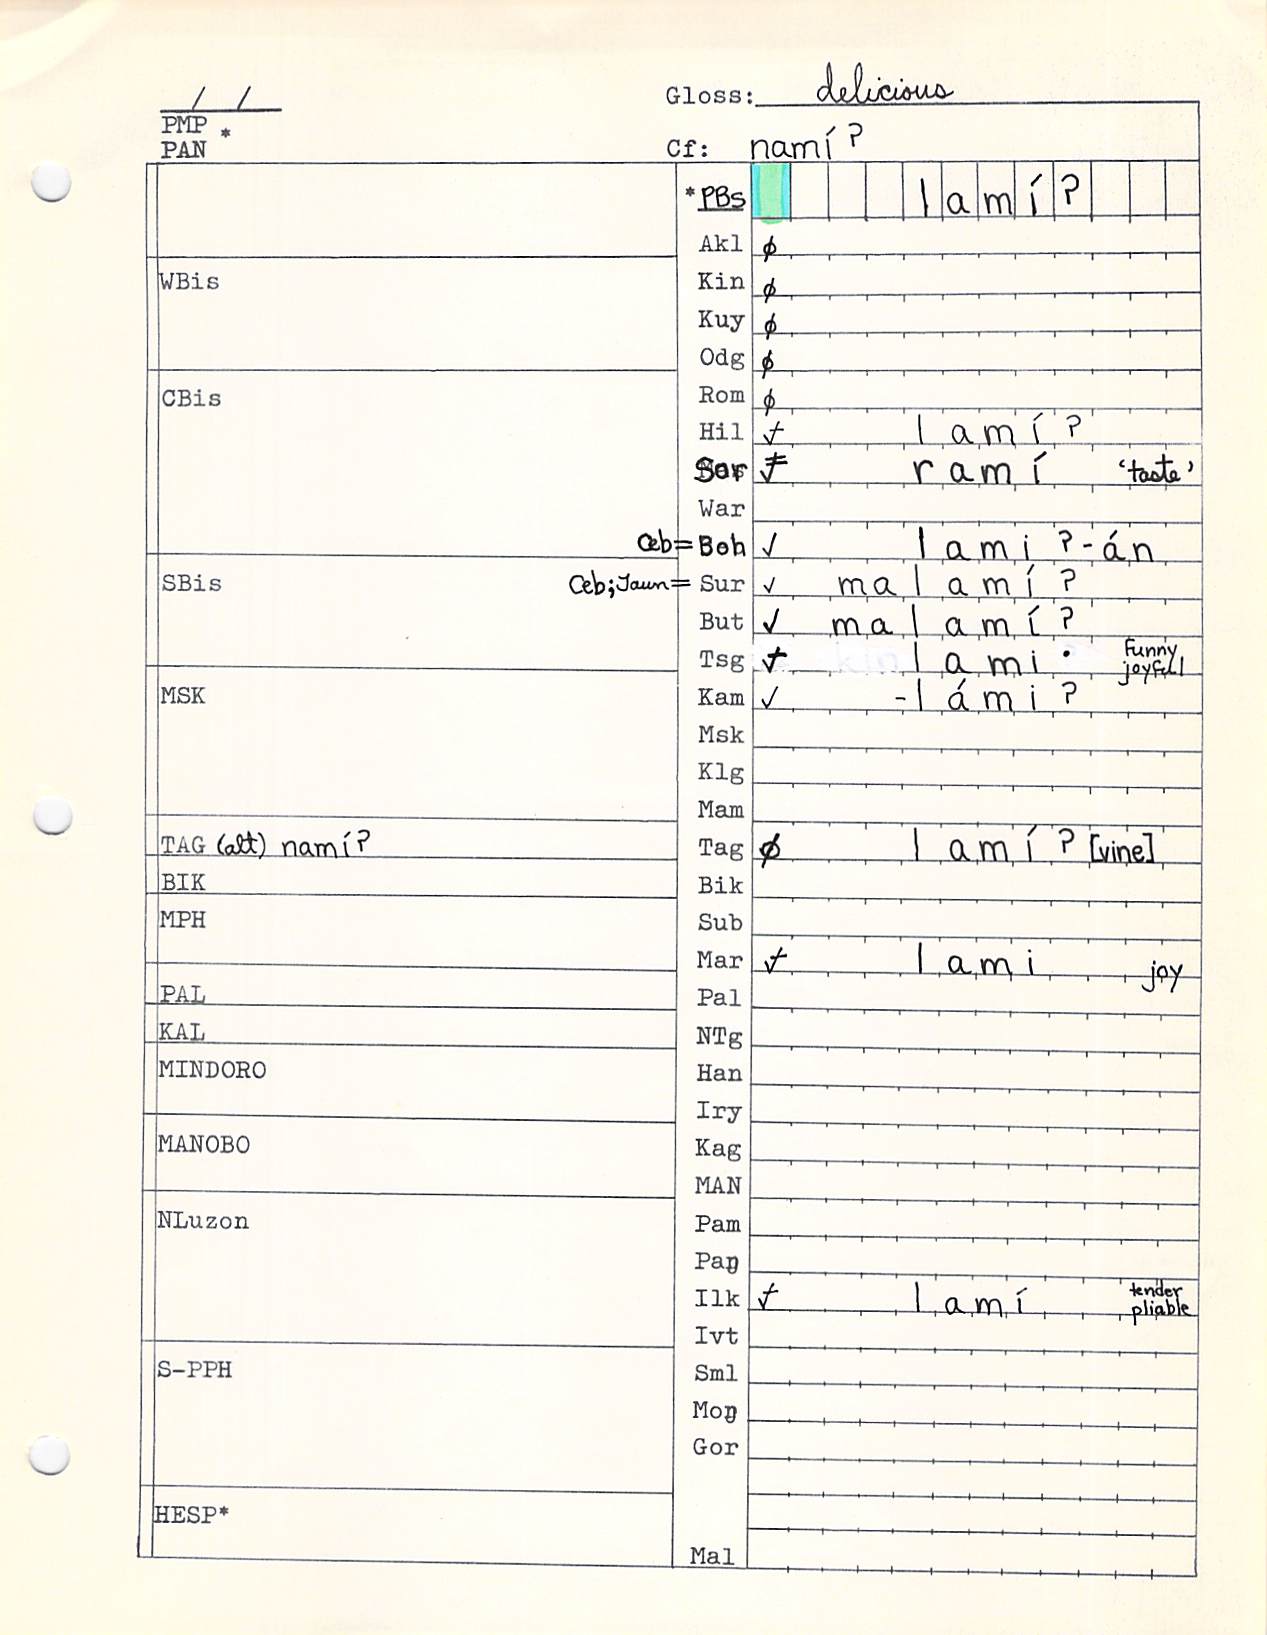 / /
Gloss: delicious
PMP *
PAN
Cf: namí?
*PBs lamí?
Akl ϕ
WBis
Kin ϕ
Kuy ϕ
Odg ϕ
CBis
Rom ϕ
Hil lamí?
Sor ramí 'taste'
War
Ceb= Boh ✓ lami?-án
SBis
Ceb; Jaun= Sur ✓ malamí?
But ✓ malamí?
Tsg lami· Funny joyful
MSK
Kam ✓ -lámi?
Msk
Klg
Mam
TAG (alt) namí?
Tag ϕ lamí? [vine]
BIK
Bik
MPH
Sub
Mar lami joy
PAL
Pal
KAL
NTg
MINDORO
Han
Iry
MANOBO
Kag
MAN
NLuzon
Pam
Paŋ
Ilk lamí tender pliable
Ivt
S-PPH
Sml
Moŋ
Gor
HESP*
Mal